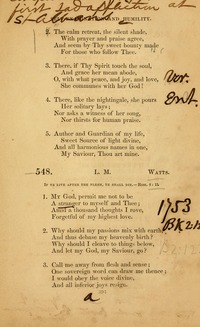 first sad affliction at
St Albans
AND HUMILITY.
2. The calm retreat, the silent shade,
With prayer and praise agree,
And seem by Thy sweet bounty made
For those who follow Thee.
3. There, if Thy Spirit touch the soul,
And grace her mean abode,
O, with what peace, and joy, and love,
She communes with her God!
4. There, like the nightingale, she pours
Her solitary lays;
Nor asks a witness of her song,
Nor thirsts for human praise.
5. Author and Guardian of my life,
Sweet Source of light divine,
And all harmonious names in one,
My Saviour, Thou art mine.
548. L. M. Watts.
If ye live after the flesh, ye shall die.—Rom. 8: 13.
1. My God, permit me not to be
A stranger to myself and Thee;
Amid a thousand thoughts I rove,
Forgetful of my highest love.
1753
2. Why should my passions mix with earth,
And thus debase my heavenly birth?
Why should I cleave to things below,
And let my God, my Saviour, go?
3. Call me away from flesh and sense;
One sovereign word can draw me thence;
I would obey the voice divine,
And all inferior joys resign.
a